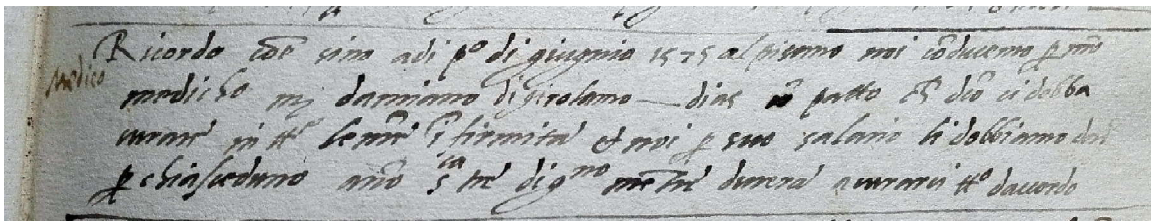 Medico
Ricordo come sino adi p.o di giugnio 1575 al pisano noi cōducemo p nr̄o
medicho mj damiano di girolamo — dias cō patto ch̄ dc̄o ci debba
curare in tt.e le nr̄e īfirmita et noi p suo salario li dobbiamo dare
p chiasceduno anō s.ca tre di g.no mētre durera a curarci tt.o daccordo